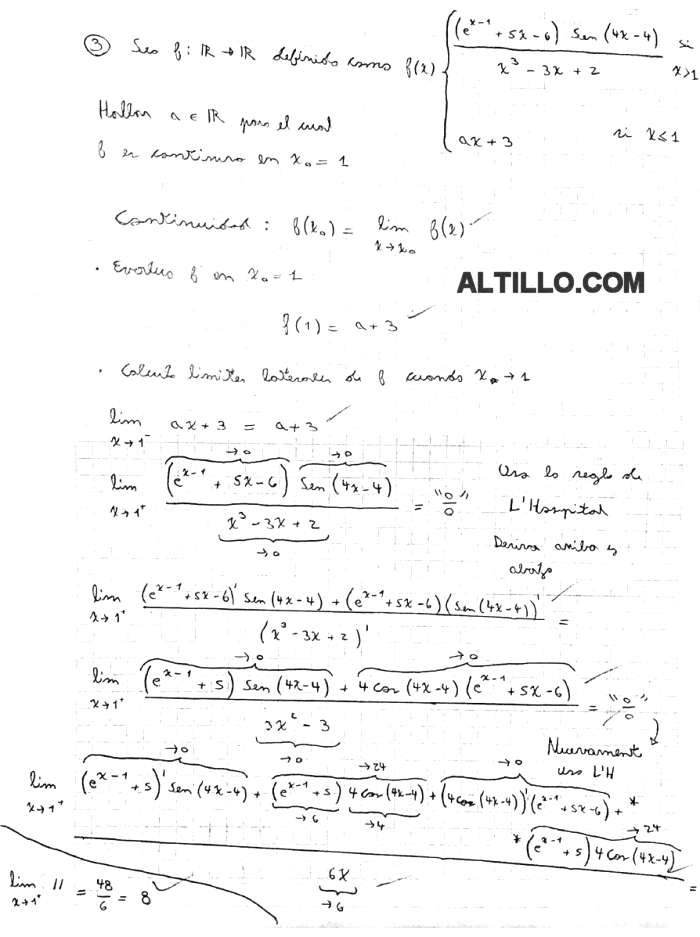 ③ Sea f: ℝ → ℝ definida como f(x) { (e^(x-1) + 5x - 6) Sen (4x - 4) / (x³ - 3x + 2) si x>1
ax + 3 si x ≤ 1
Hallar a ∈ ℝ para el cual
f es continua en x₀ = 1
Continuidad : f(x₀) = lim x→x₀ f(x) ✓
· Evalúo f en x₀ = 1
ALTILLO.COM
f(1) = a + 3 ✓
· Calculo limites laterales de f cuando x → 1
lim x→1⁻ ax + 3 = a + 3 ✓
lim x→1⁺ (e^(x-1) + 5x - 6) [→0] Sen (4x - 4) [→0] / (x³ - 3x + 2) [→0] = "0/0"
Uso la regla de
L'Hospital
Derivo arriba y
abajo
lim x→1⁺ ((e^(x-1) + 5x - 6)' Sen (4x - 4) + (e^(x-1) + 5x - 6) (Sen (4x - 4))') / (x³ - 3x + 2)' =
lim x→1⁺ ((e^(x-1) + 5) Sen (4x - 4) [→0] + 4 cos (4x - 4) (e^(x-1) + 5x - 6) [→0]) / (3x² - 3) [→0] = "0/0"
Nuevament
uso L'H
lim x→1⁺ (e^(x-1) + 5)' Sen (4x - 4) [→0] + (e^(x-1) + 5) [→6] 4 cos (4x - 4) [→4] [→24] + (4 cos (4x - 4))' (e^(x-1) + 5x - 6) [→0] + *
* (e^(x-1) + 5) 4 cos (4x - 4) [→24]
6x [→6] =
lim x→1⁺ // = 48/6 = 8 ✓